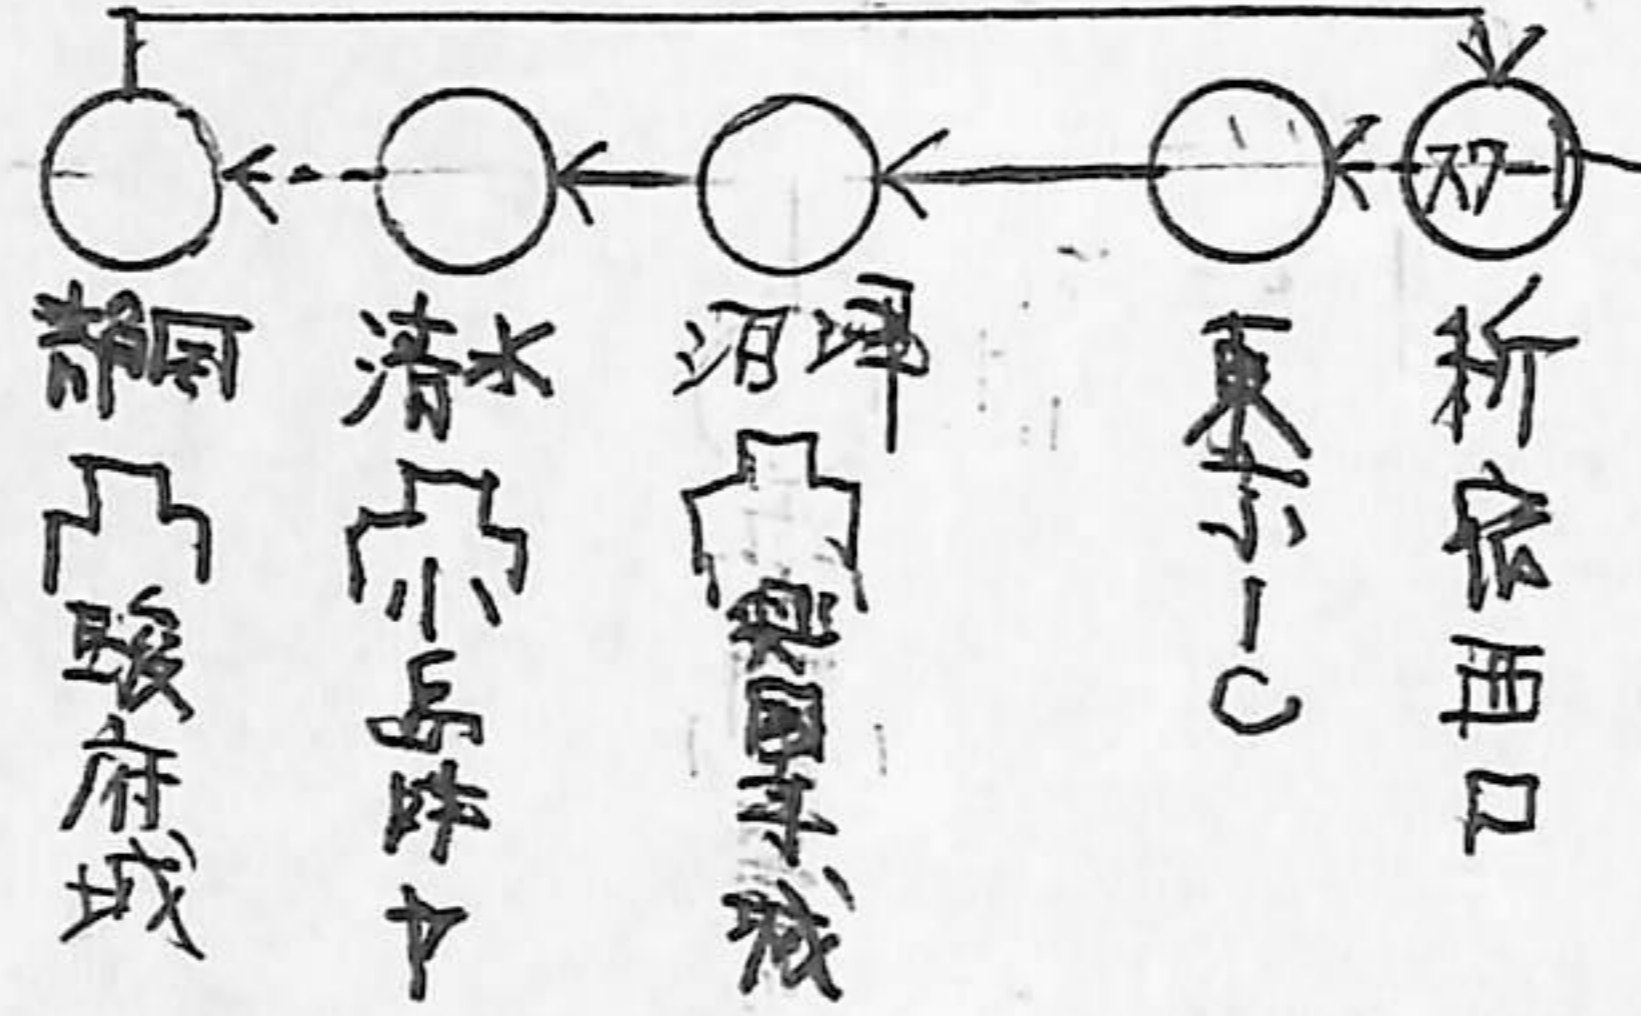 スタート
新宿西口
東京IC
沼津
興国寺城
清水
小島陣ヤ
静岡
駿府城